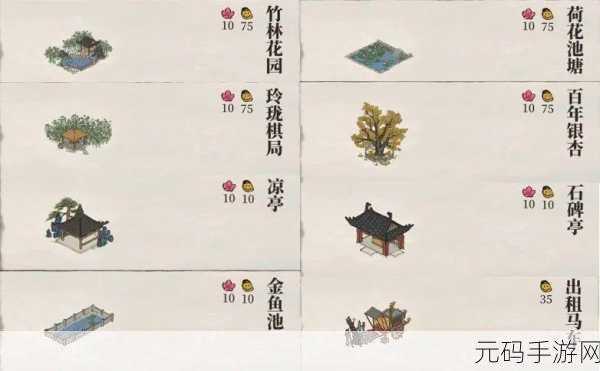 竹林花园
10 75
荷花池塘
10 75
玲珑棋局
10 75
百年银杏
10 75
凉亭
10 10
石碑亭
10 10
金鱼池
10 10
出租马车
35
元码手游网